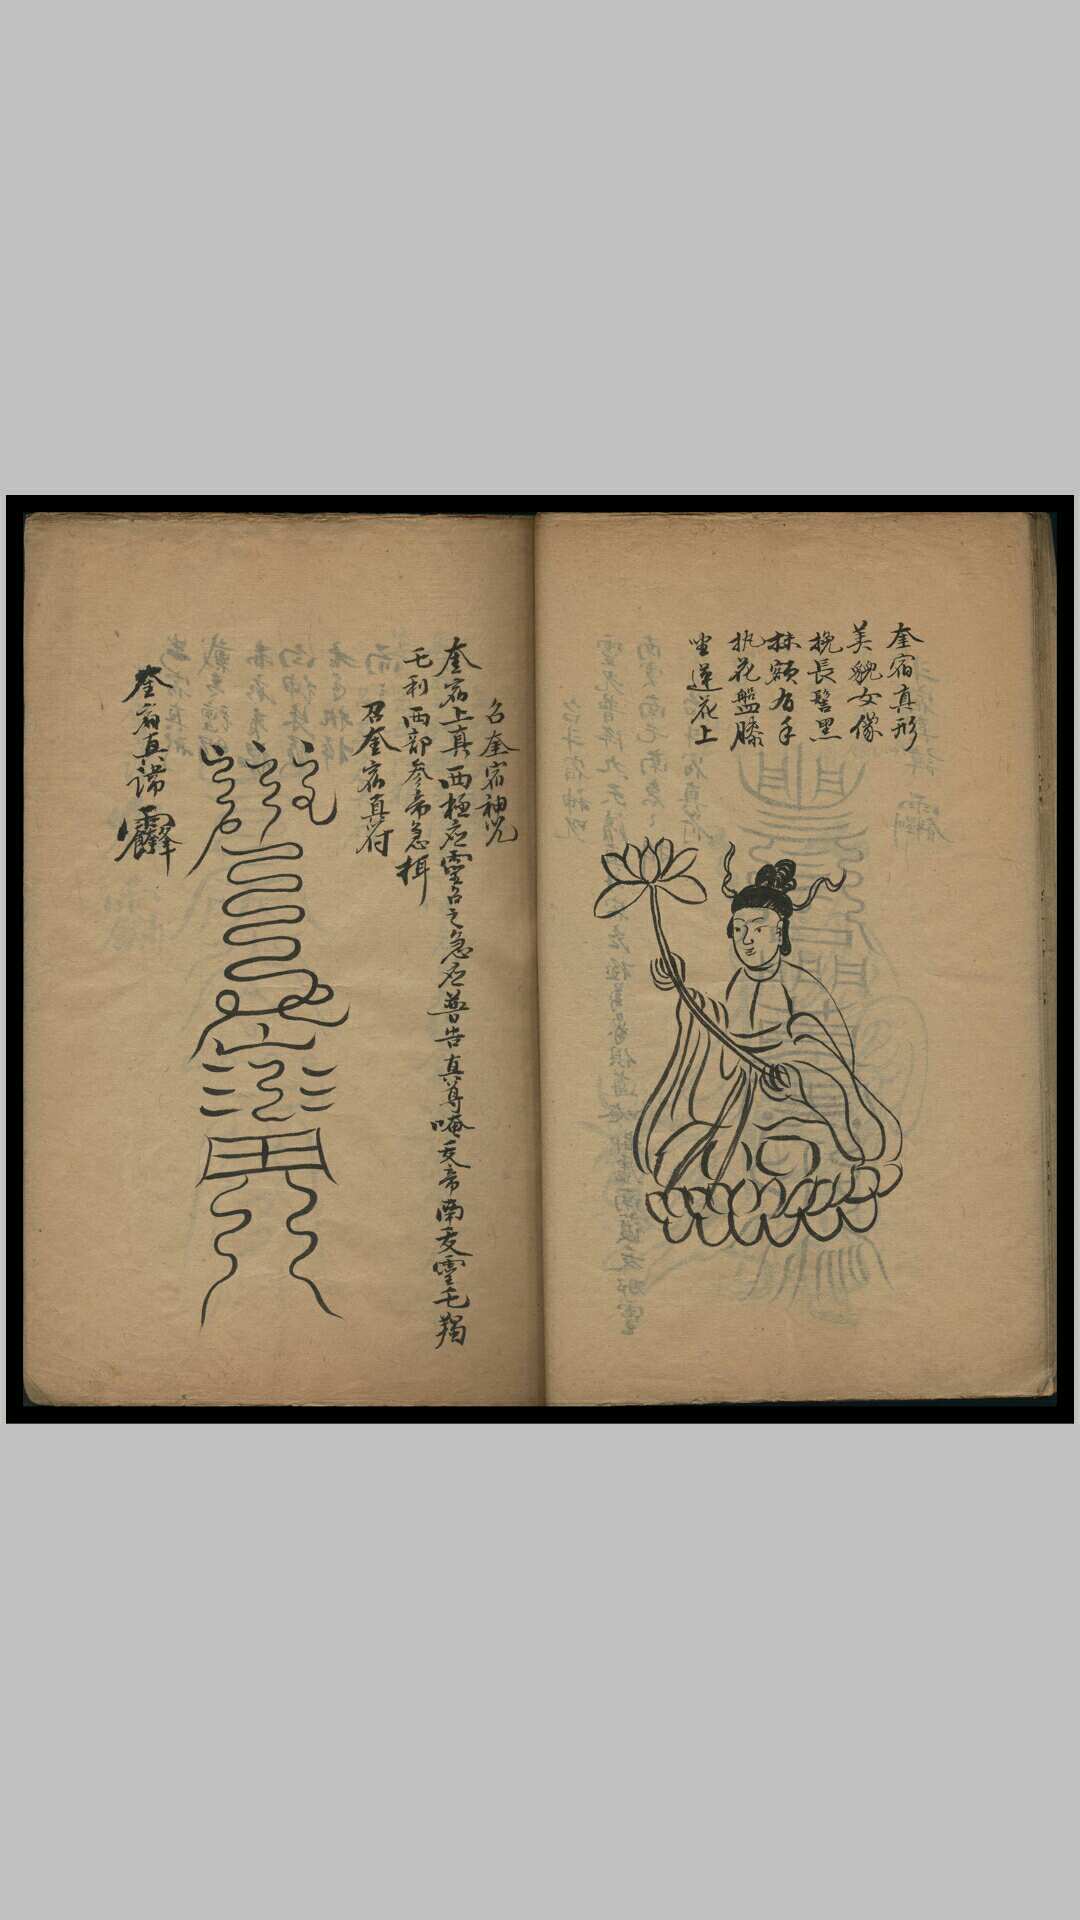 奎宿真形
美貌女像
挽長髻黑
抹額右手
执花盤膝
坐蓮花上
召奎宿神咒
奎宿上真西極应靈召之急应普告真尊唵支帝南支靈毛羯
毛利西部参帝急揖
召奎宿真符
奎宿真諱